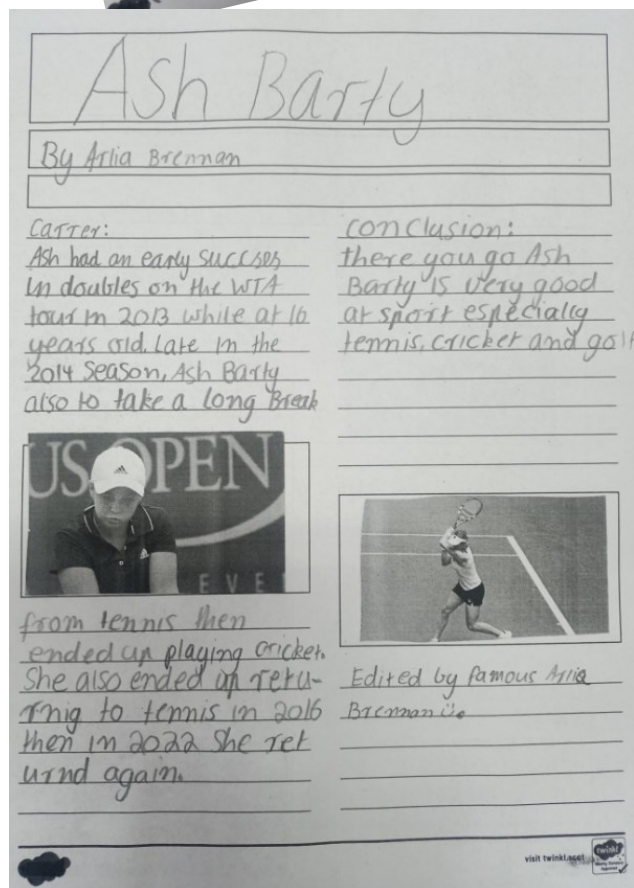 Ash Barty
By Arlia Brennan
Carrer:
Ash had an early succses
in doubles on the WTA
tour in 2013 while at 16
years old. late in the
2014 Season, Ash Barty
also to take a long Break
US OPEN
EVE
from tennis then
ended up playing cricket.
She also ended up retu-
rnig to tennis in 2016
then in 2022 She ret
urnd again.
conclusion:
there you go Ash
Barty is very good
at sport especially
tennis, cricket and golf
Edited by famous Arlia
Brennan
visit twinkl.com
twinkl